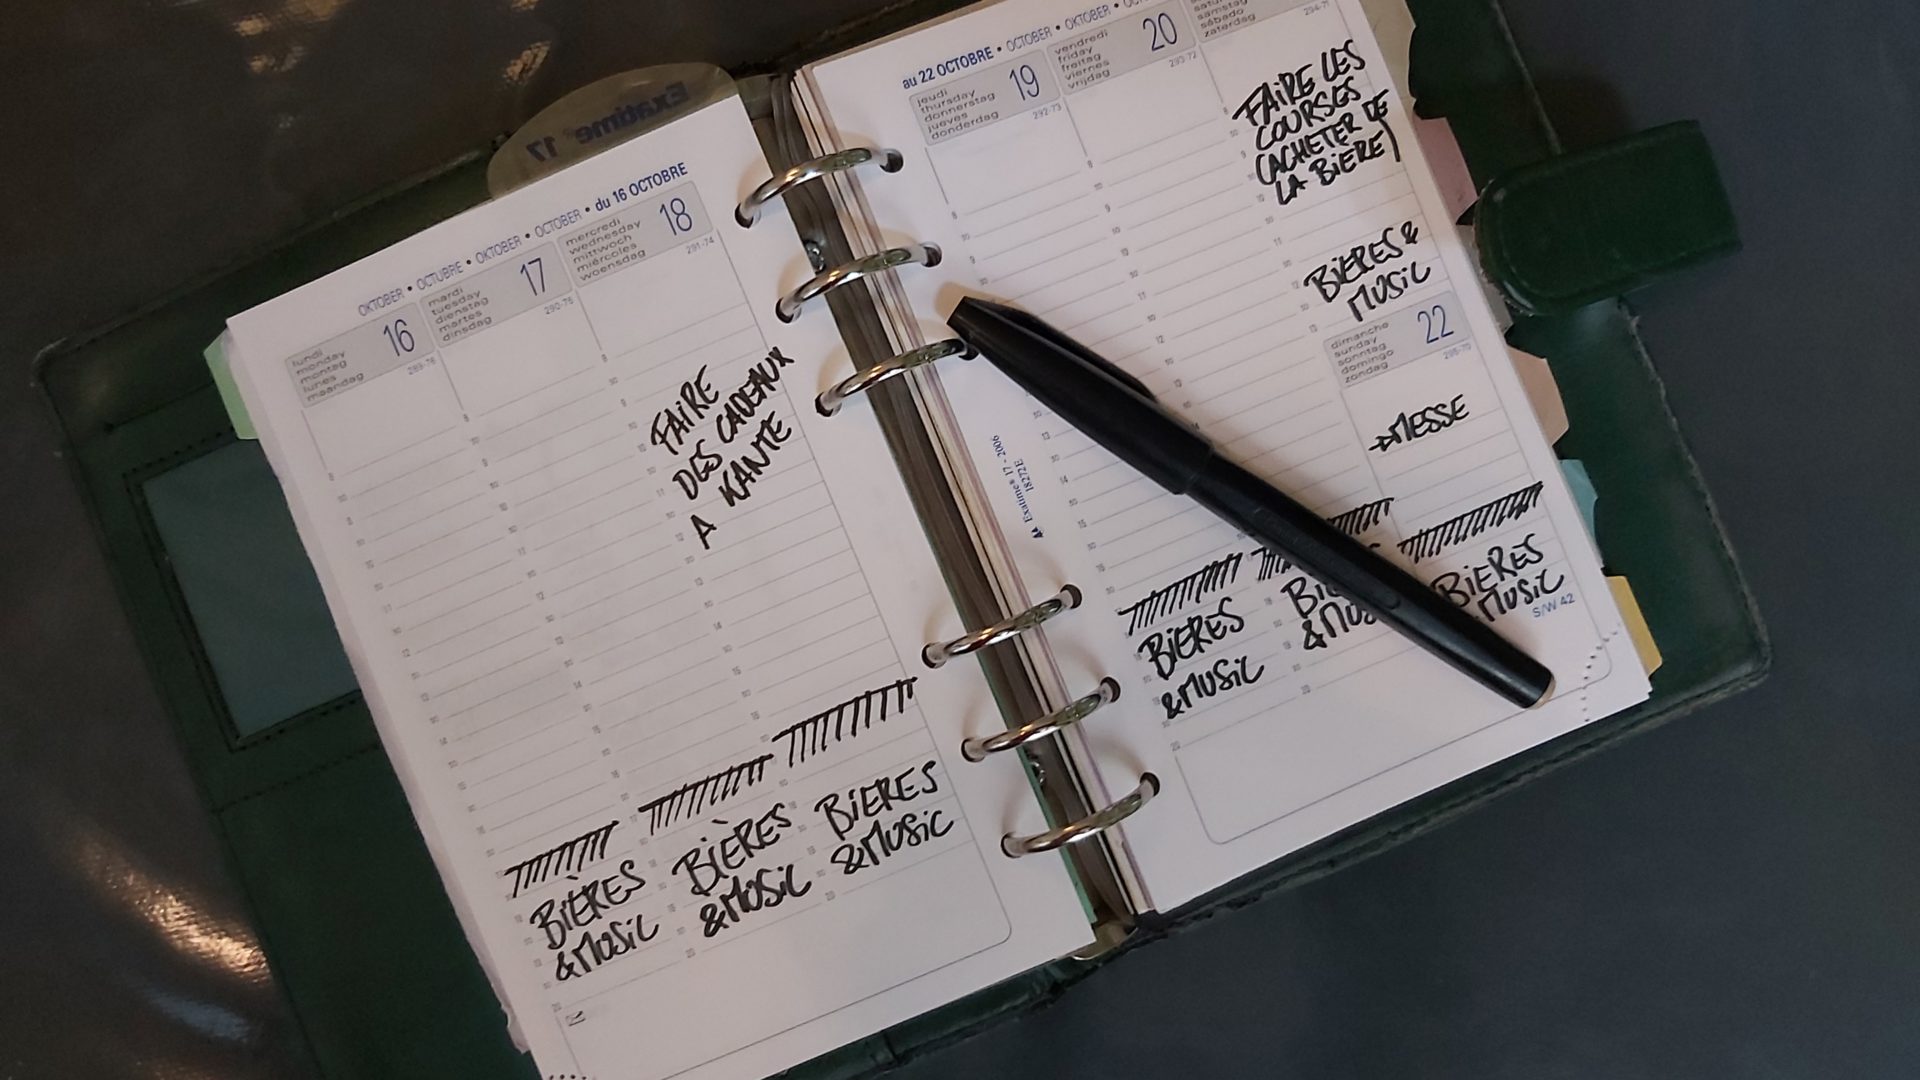 Exatime 17
OKTOBER • OCTUBRE • OKTOBER • OCTOBER • du 16 OCTOBRE
lundi
monday
montag
lunes
maandag
16
289-76
mardi
tuesday
dienstag
martes
dinsdag
17
290-75
mercredi
wednesday
mittwoch
miércoles
woensdag
18
291-74
FAIRE
DES CADEAUX
A KANTE
BIÈRES
&MUSIC
BIÈRES
&MUSIC
BIERES
&MUSIC
au 22 OCTOBRE • OCTOBER • OKTOBER •
jeudi
thursday
donnerstag
jueves
donderdag
19
292-73
vendredi
friday
freitag
viernes
vrijdag
20
293-72
samstag
sábado
zaterdag
294-71
FAIRE LES
COURSES
(ACHETER DE
LA BIERE)
BIERES &
MUSIC
dimanche
sunday
sonntag
domingo
zondag
22
295-70
→MESSE
Exatimes 17 - 2006
18272E
BIERES
&MUSIC
BIERES
MUSIC
S/W 42